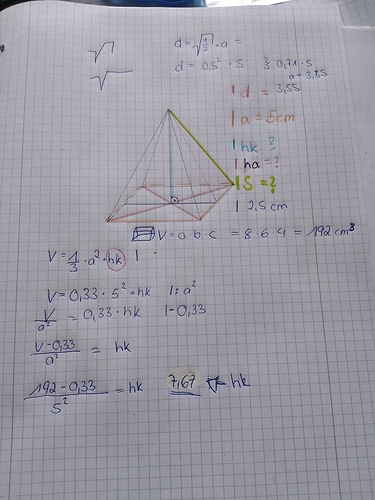 √ √
d = √(1/2) · a =
d = 0,5² · 5   } 0,71 · 5
a = 3,55
| d = 3,55
| a = 5cm
| hk ?
| ha = ?
| S = ?
| 2,5 cm
V = a · b · c = 8 · 6 · 4 = 192 cm³
V = 1/3 · a² · hk |
V = 0,33 · 5² · hk   | : a²
V/a² = 0,33 · hk   | - 0,33
V - 0,33 / a² = hk
192 - 0,33 / 5² = hk   7,67 hk